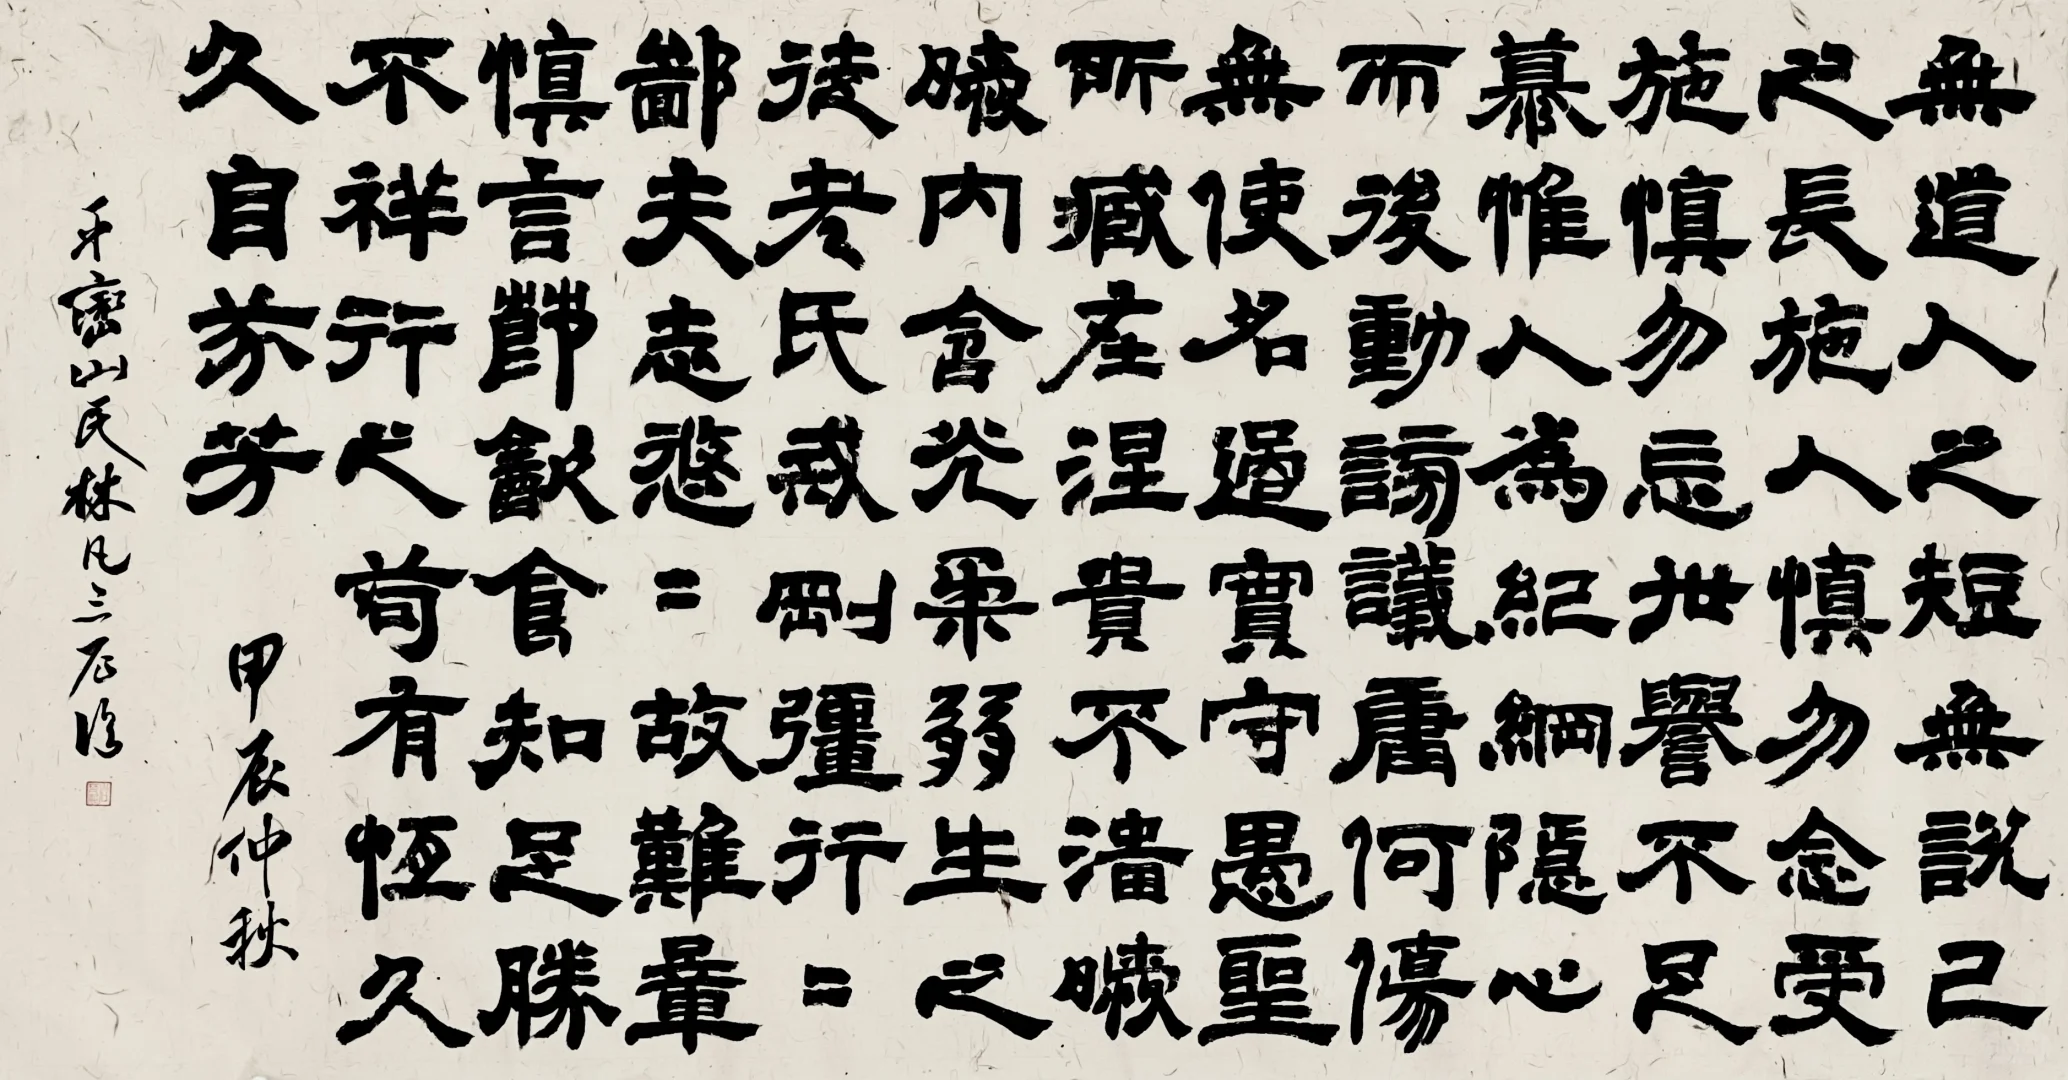 無道人之短無說己
之長施人慎勿念受
施慎勿忘世譽不足
慕惟人為紀綱隱心
而後動謗議庸何傷
無使名過實守愚聖
所臧在涅貴不淄曖
曖內含光柔弱生之
徒老氏戒剛彊行=
鄙夫志悠=故難量
慎言節飲食知足勝
不祥行之苟有恆久
久自芬芳 甲辰仲秋
平巒山民林凡三